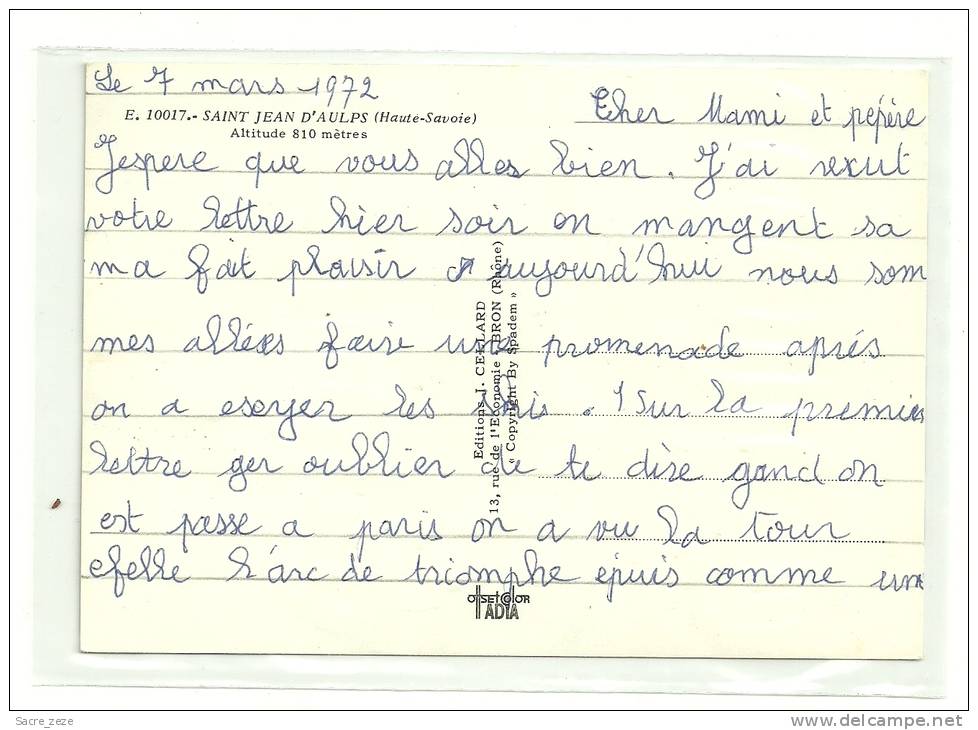 Le 7 mars 1972
E. 10017.- SAINT JEAN D'AULPS (Haute-Savoie)
Altitude 810 mètres
Cher Mami et pépère
J'espere que vous alles bien. J'ai rexut
votre lettre hier soir on mangent sa
ma fait plaisir aujourd'hui nous som
mes alléés faire une promenade aprés
on a eseyer les skis. Sur la premier
lettre ger oublier de te dire gand on
est passe a paris on a vu la tour
efelle l'arc de triomphe épuis comme un
Editions J. CELLARD
13, rue de l'Economie - BRON (Rhône)
« Copyright By Spadem »
OFFSETCOLOR
ADIA
Sacre_zeze
www.delcampe.net